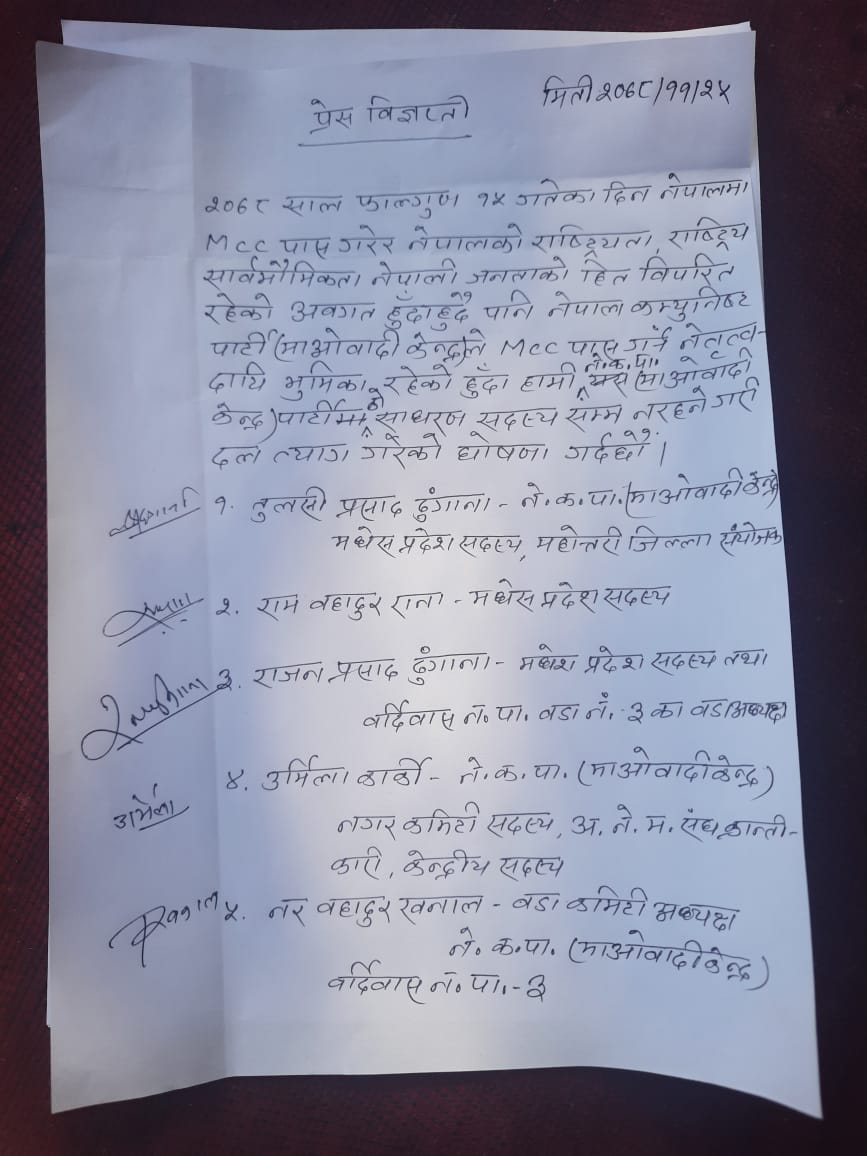 मिती २०७८/११/२५
प्रेस विज्ञप्ती
२०७८ साल फाल्गुण १५ गतेका दिन नेपालमा
MCC पास गरेर नेपालको राष्ट्रियता, राष्ट्रिय
सार्वभौमिकता नेपाली जनताको हित विपरित
रहेको अवगत हुँदाहुदै पनि नेपाल कम्युनिष्ट
पार्टी (माओवादी केन्द्र)ले MCC पास गर्न नेतृत्व-
दायि भुमिका रहेको हुँदा हामी ने.क.पा. (माओवादी
केन्द्र) पार्टीमा को साधरण सदस्य सम्म नरहने गरी
दल त्याग गरेको घोषणा गर्दछौं ।
१. तुलसी प्रसाद ढुंगाना - ने.क.पा. (माओवादी केन्द्र)
मधेस प्रदेश सदस्य, महोत्तरी जिल्ला संयोजक
२. राम वहादुर राना - मधेस प्रदेश सदस्य
३. राजन प्रसाद ढुंगाना - मधेश प्रदेश सदस्य तथा
वर्दिवास न.पा. वडा नं. - ३ का वडा अध्यक्ष
उर्मिला ४. उर्मिला कार्की - ने.क.पा. (माओवादी केन्द्र)
नगर कमिटी सदस्य, अ. ने. म. संघ, क्रान्ती-
कारी, केन्द्रीय सदस्य
५. नर वहादुर खनाल - वडा कमिटी अध्यक्ष
ने. क.पा. (माओवादी केन्द्र)
वर्दिवास न.पा. - ३